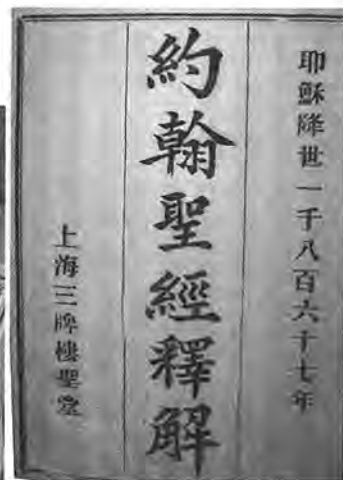 耶穌降世一千八百六十七年
約翰聖經釋解
上海三牌樓聖堂